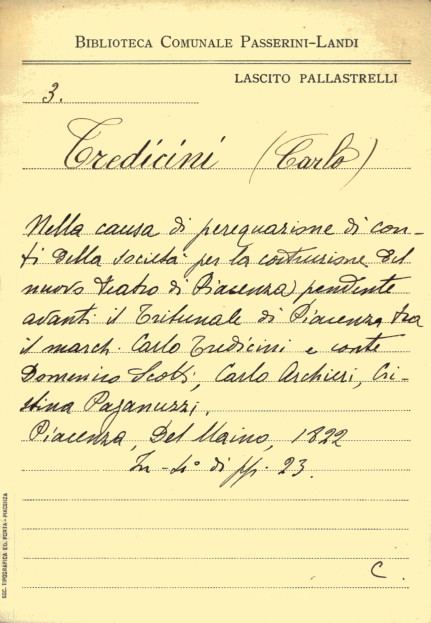 BIBLIOTECA COMUNALE PASSERINI-LANDI
LASCITO PALLASTRELLI
3.
Tredicini (Carlo)
Nella causa di perequazione di con-
ti della società per la costruzione del
nuovo teatro di Piacenza) pendente
avanti il Tribunale di Piacenza tra
il march. Carlo Tredicini e conte
Domenico Scotti, Carlo Archieri, Cri-
stina Paganuzzi.
Piacenza, Del Maino, 1822
In-4° di pp. 23.
C.
SOC. TIPOGRAFICA ED. PORTA-PIACENZA